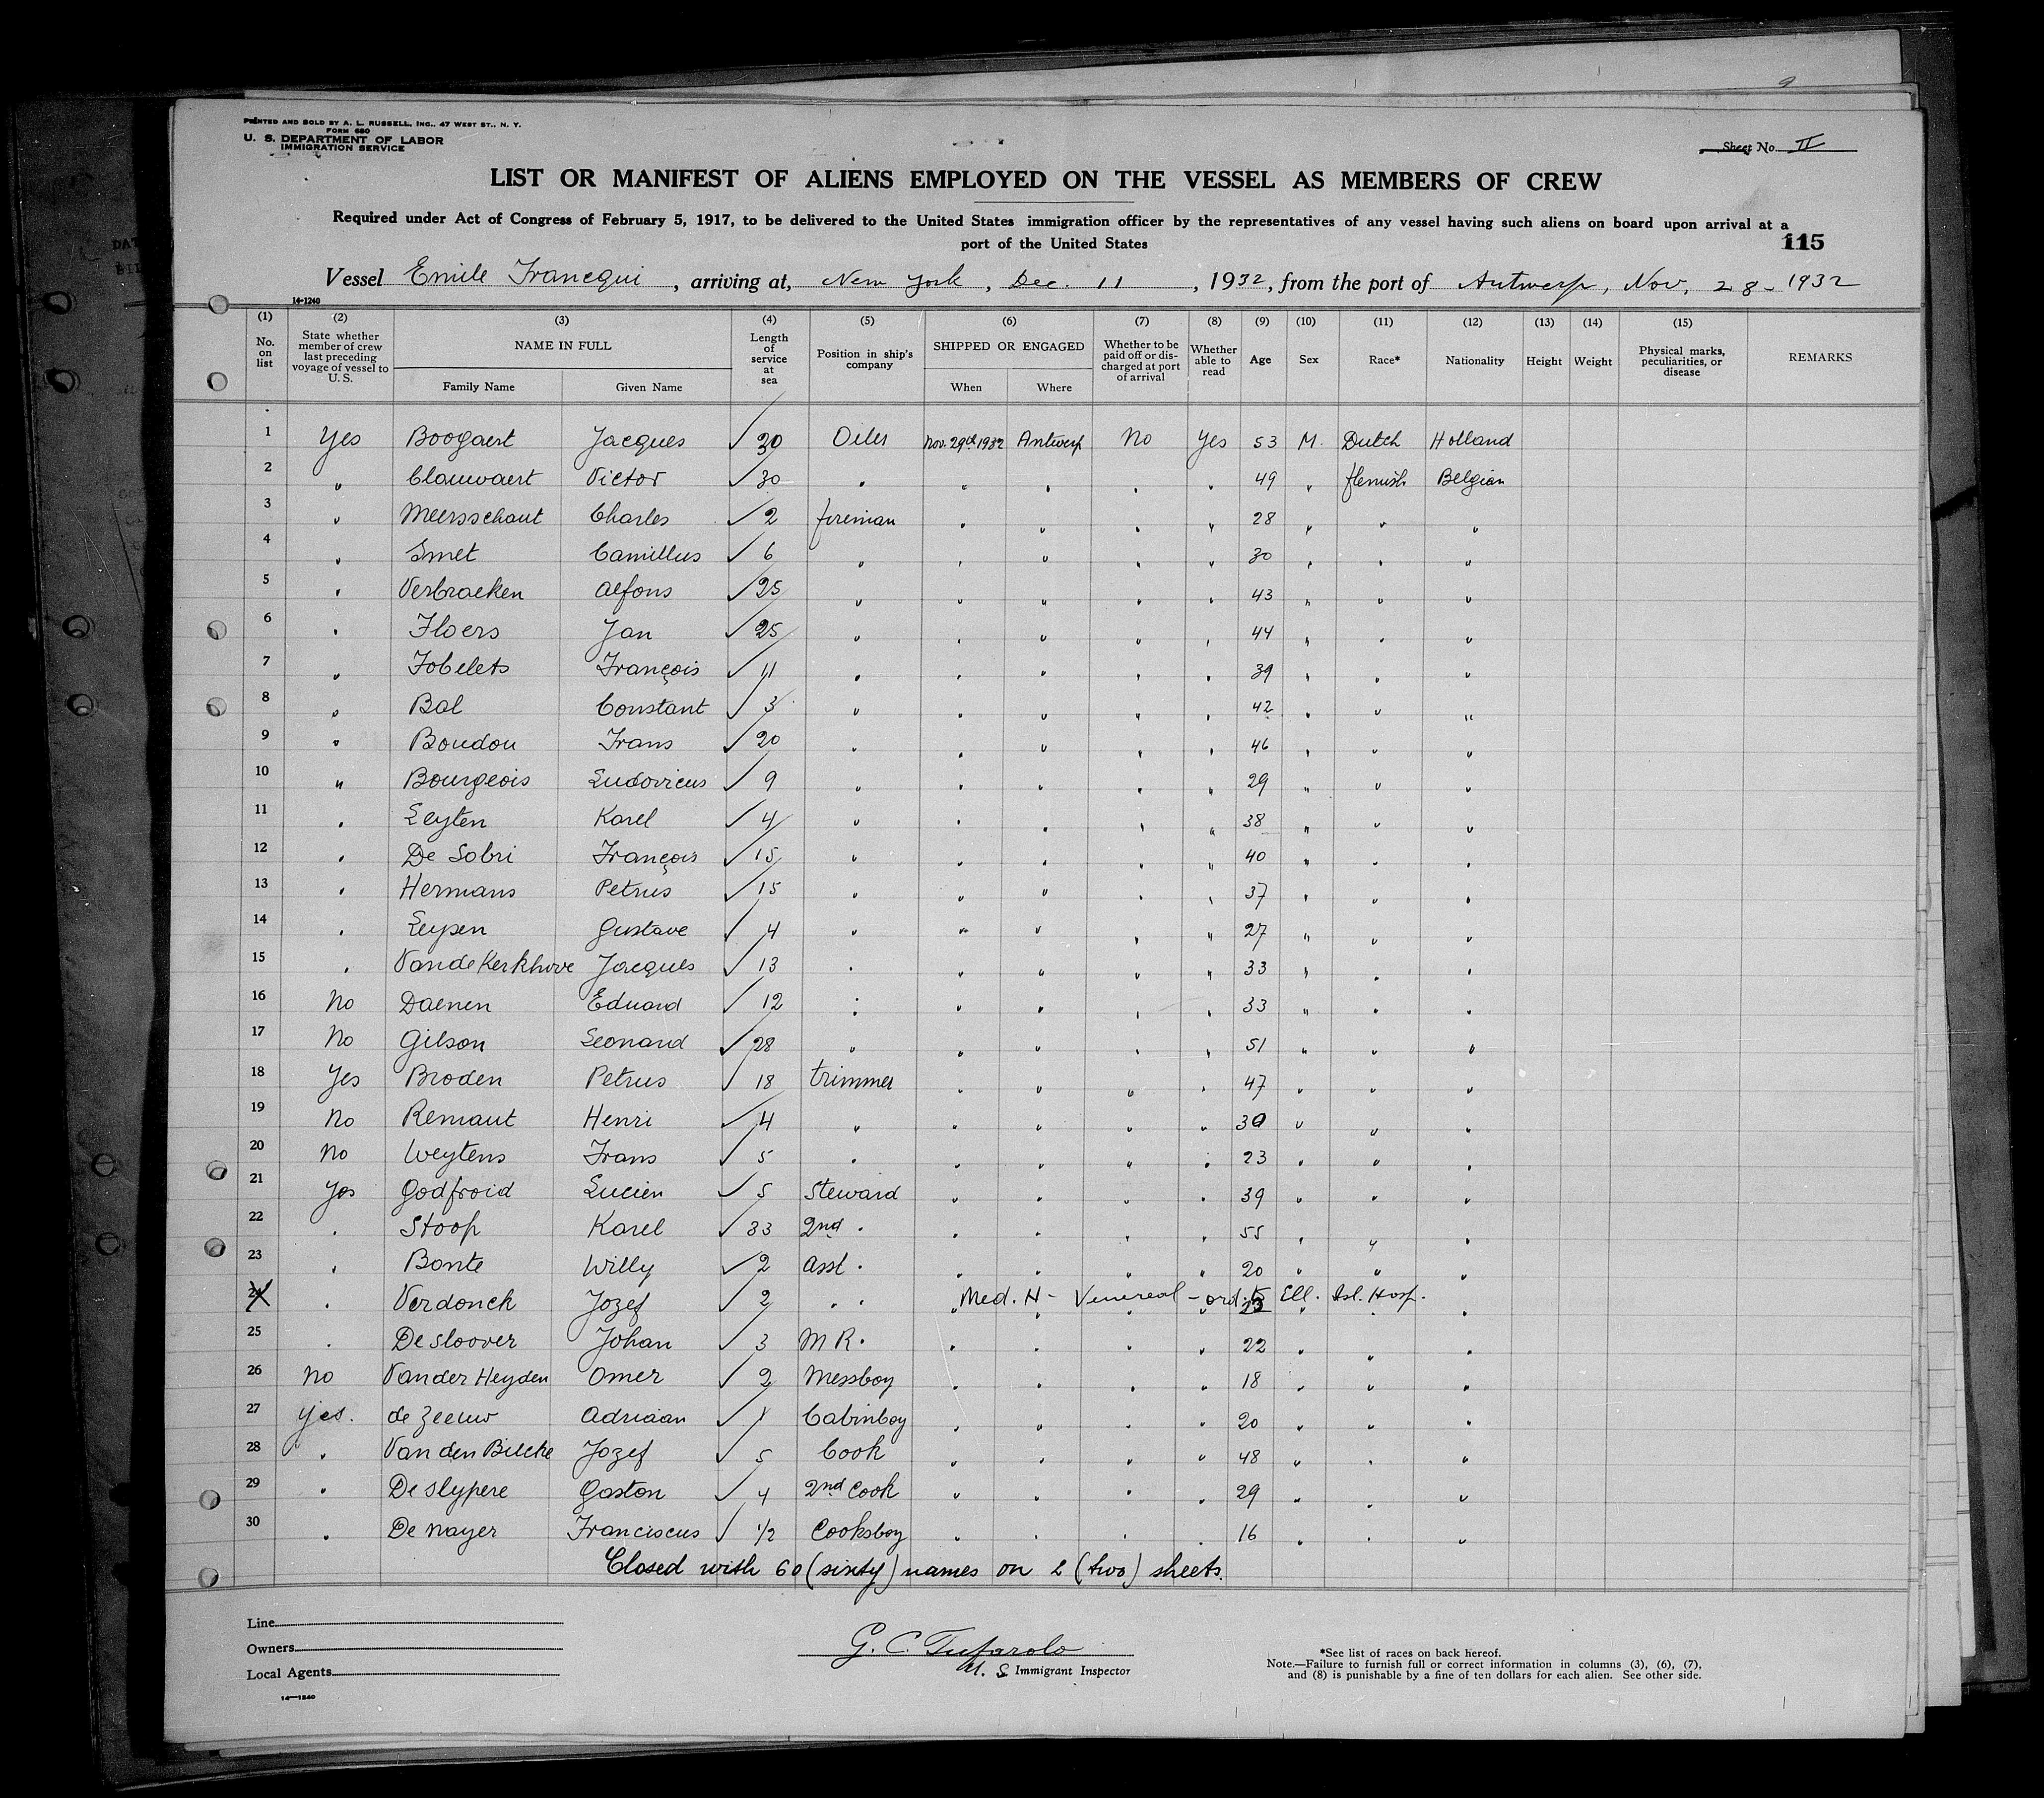 PRINTED AND SOLD BY A. L. RUSSELL, INC., 47 WEST ST., N. Y.
FORM 680
U. S. DEPARTMENT OF LABOR
IMMIGRATION SERVICE
Sheet No. II
LIST OR MANIFEST OF ALIENS EMPLOYED ON THE VESSEL AS MEMBERS OF CREW
Required under Act of Congress of February 5, 1917, to be delivered to the United States immigration officer by the representatives of any vessel having such aliens on board upon arrival at a
port of the United States
115
Vessel Emile Francqui, arriving at, New York, Dec. 11, 1932, from the port of Antwerp, Nov. 28- 1932
14-1240
(1) (2) (3) (4) (5) (6) (7) (8) (9) (10) (11) (12) (13) (14) (15)
No. on list State whether member of crew last preceding voyage of vessel to U. S. NAME IN FULL Length of service at sea Position in ship's company SHIPPED OR ENGAGED Whether to be paid off or discharged at port of arrival Whether able to read Age Sex Race* Nationality Height Weight Physical marks, peculiarities, or disease REMARKS
Family Name Given Name When Where
1 Yes Boogaert Jacques ✓ 30 Oiler Nov. 29th 1932 Antwerp No Yes 53 M. Dutch Holland
2 " Clauwaert Victor ✓ 30 " " " " " 49 " flemish Belgian
3 " Meersschaut Charles ✓ 2 fireman " " " " 28 " " "
4 " Smet Camillus ✓ 6 " " " " " 30 " " "
5 " Verbraeken Alfons ✓ 25 " " " " " 43 " " "
6 " Floers Jan ✓ 25 " " " " " 44 " " "
7 " Fobelets François ✓ 11 " " " " " 39 " " "
8 " Bal Constant ✓ 3 " " " " " 42 " " "
9 " Boudou Frans ✓ 20 " " " " " 46 " " "
10 " Bourgeois Ludovicus ✓ 9 " " " " " 29 " " "
11 " Leyten Karel ✓ 4 " " " " " 38 " " "
12 " De Sobri François ✓ 15 " " " " " 40 " " "
13 " Hermans Petrus ✓ 15 " " " " " 37 " " "
14 " Leysen Gustave ✓ 4 " " " " " 27 " " "
15 " Van de Kerkhove Jacques ✓ 13 " " " " " 33 " " "
16 No Daenen Eduard ✓ 12 " " " " " 33 " " "
17 No Gilson Leonard ✓ 28 " " " " " 51 " " "
18 Yes Broden Petrus ✓ 18 trimmer " " " " 47 " " "
19 No Remaut Henri ✓ 4 " " " " " 30 " " "
20 No Weytens Frans ✓ 5 " " " " " 23 " " "
21 Yes Godfroid Lucien ✓ 5 Steward " " " " 39 " " "
22 " Stoop Karel ✓ 33 2nd " " " " " 55 " " "
23 " Bonte Willy ✓ 2 asst. " " " " " 20 " " "
24 " Verdonck Jozef ✓ 2 " " Med. H - Venereal - ord. to Ell. Isl. Hosp.
25 " De Sloover Johan ✓ 3 M R. " " " " 22 " " "
26 No Van der Heyden Omer ✓ 2 Messboy " " " " 18 " " "
27 yes. de Zeeuw Adriaan ✓ 1 Cabinboy " " " " 20 " " "
28 " Van den Bilcke Jozef ✓ 5 Cook " " " " 48 " " "
29 " De Slypere Gaston ✓ 4 2nd Cook " " " " 29 " " "
30 " De Nayer Franciscus ✓ 1/2 Cooksboy " " " " 16 " " "
Closed with 60 (sixty) names on 2 (two) sheets.
Line
Owners
Local Agents
14-1240
G. C. Tufarolo
U. S. Immigrant Inspector
*See list of races on back hereof.
Note.—Failure to furnish full or correct information in columns (3), (6), (7),
and (8) is punishable by a fine of ten dollars for each alien. See other side.